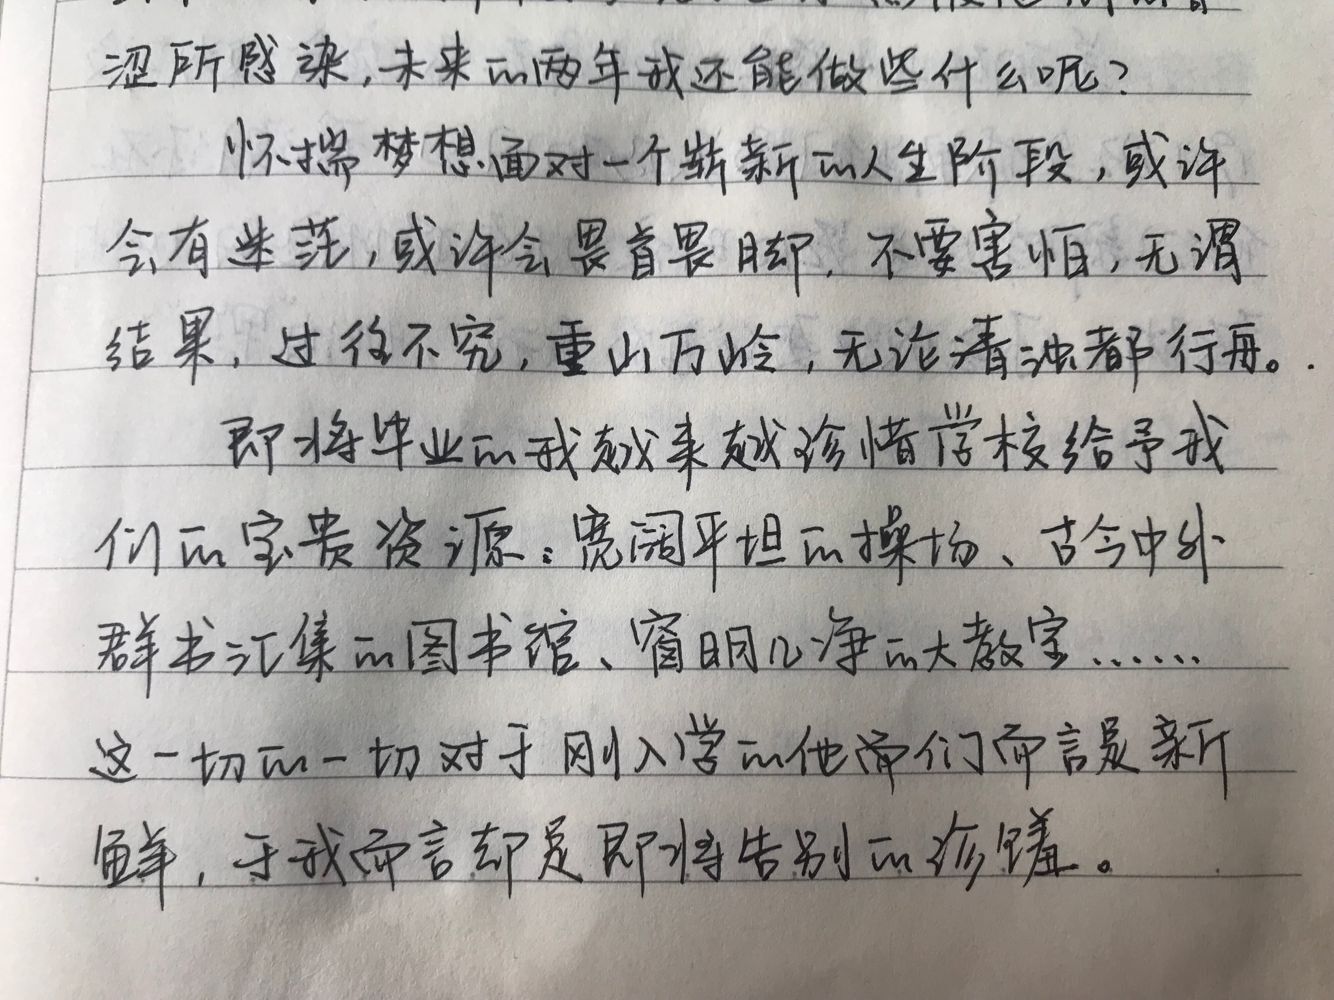 涩所感染，未来的两年我还能做些什么呢？
怀揣梦想面对一个崭新的人生阶段，或许
会有迷茫，或许会畏首畏脚，不要害怕，无谓
结果，过往不究，重山万岭，无论清浊都行舟。
即将毕业的我越来越珍惜学校给予我
们的宝贵资源：宽阔平坦的操场、古今中外
群书汇集的图书馆、窗明几净的大教室……
这一切的一切对于刚入学的他而们而言是新
鲜，于我而言却是即将告别的珍馐。